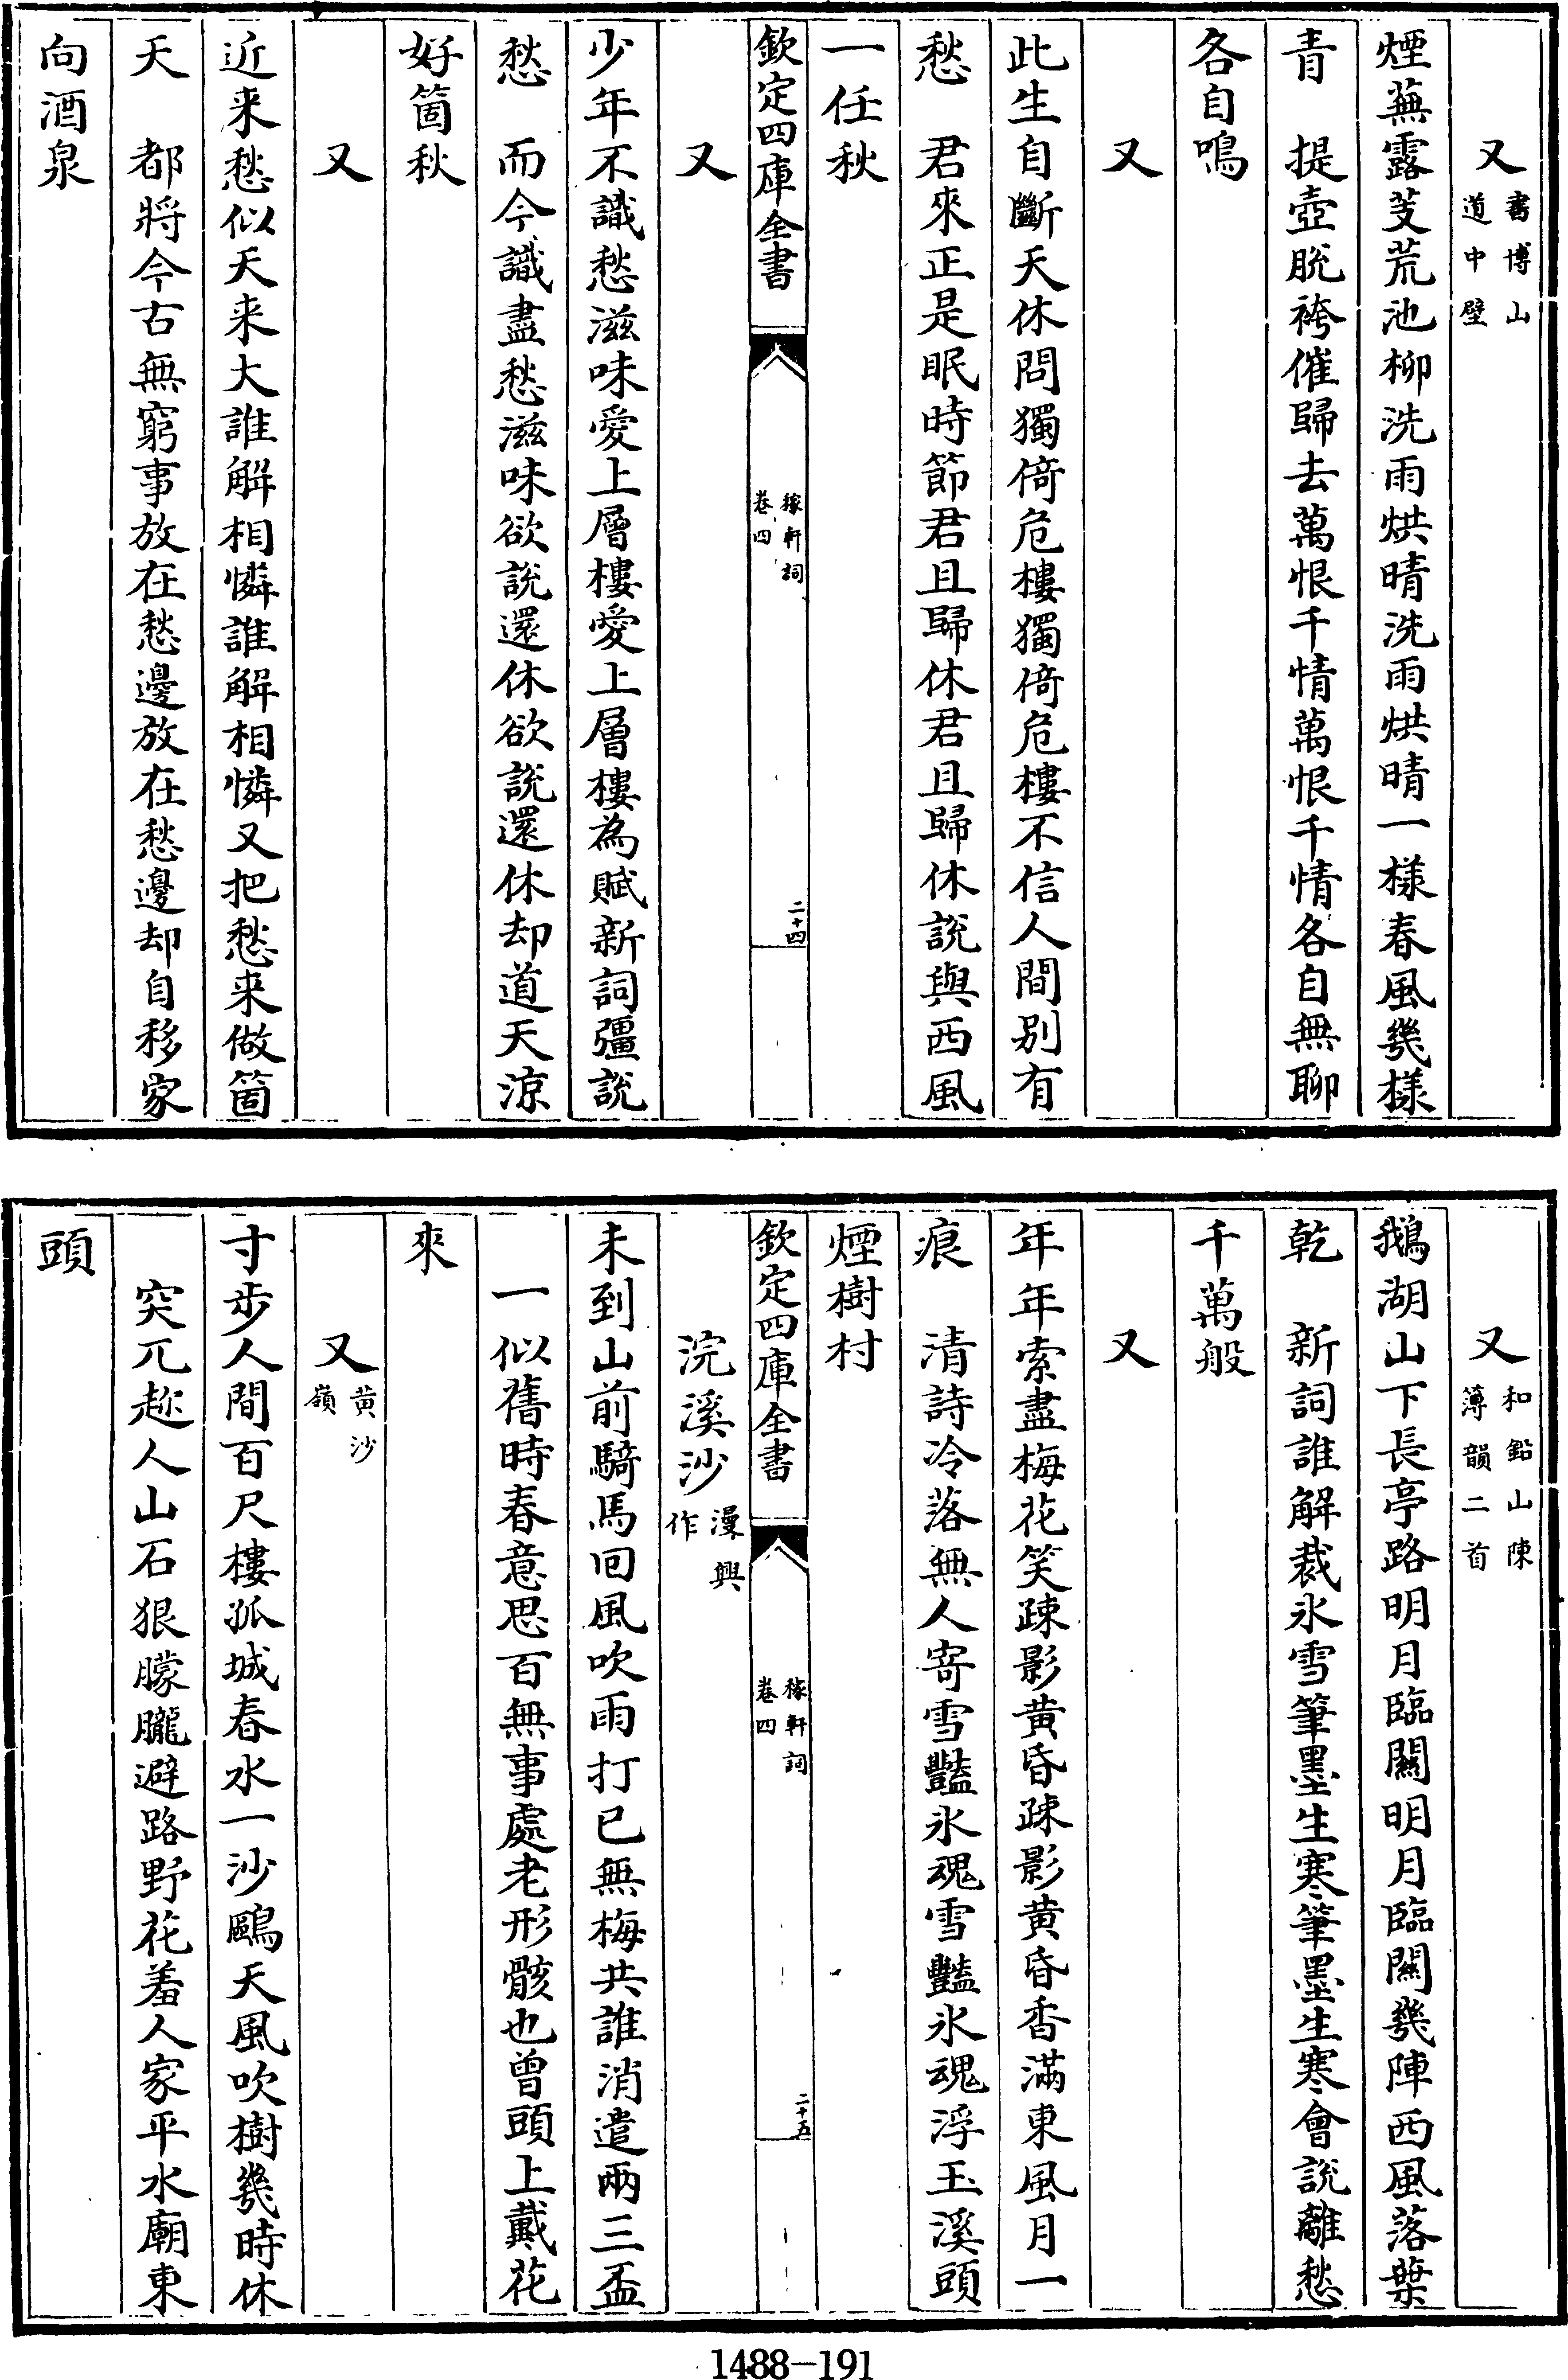 又書博山道中壁
煙蕪露芰荒池柳洗雨烘晴洗雨烘晴一樣春風幾樣
青　提壺脫袴催歸去萬恨千情萬恨千情各自無聊
各自鳴
又
此生自斷天休問獨倚危樓獨倚危樓不信人間别有
愁　君來正是眠時節君且歸休君且歸休說與西風
一任秋
欽定四庫全書　稼軒詞卷四　二十四
又
少年不識愁滋味愛上層樓愛上層樓為賦新詞彊說
愁　而今識盡愁滋味欲說還休欲說還休却道天涼
好箇秋
又
近来愁似天来大誰解相憐誰解相憐又把愁来做箇
天　都將今古無窮事放在愁邊放在愁邊却自移家
向酒泉
又和鉛山陳簿韻二首
鵝湖山下長亭路明月臨關明月臨關幾陣西風落葉
乾　新詞誰解裁氷雪筆墨生寒筆墨生寒會說離愁
千萬般
又
年年索盡梅花笑疎影黄昏疎影黄昏香滿東風月一
痕　清詩冷落無人寄雪豔氷魂雪豔氷魂浮玉溪頭
煙樹村
欽定四庫全書　稼軒詞卷四　二十五
浣溪沙漫興作
未到山前騎馬回風吹雨打已無梅共誰消遣兩三盃
一似舊時春意思百無事處老形骸也曾頭上戴花
來
又黄沙嶺
寸步人間百尺樓孤城春水一沙鷗天風吹樹幾時休
突兀趂人山石狠朦朧避路野花羞人家平水廟東
頭
1488-191